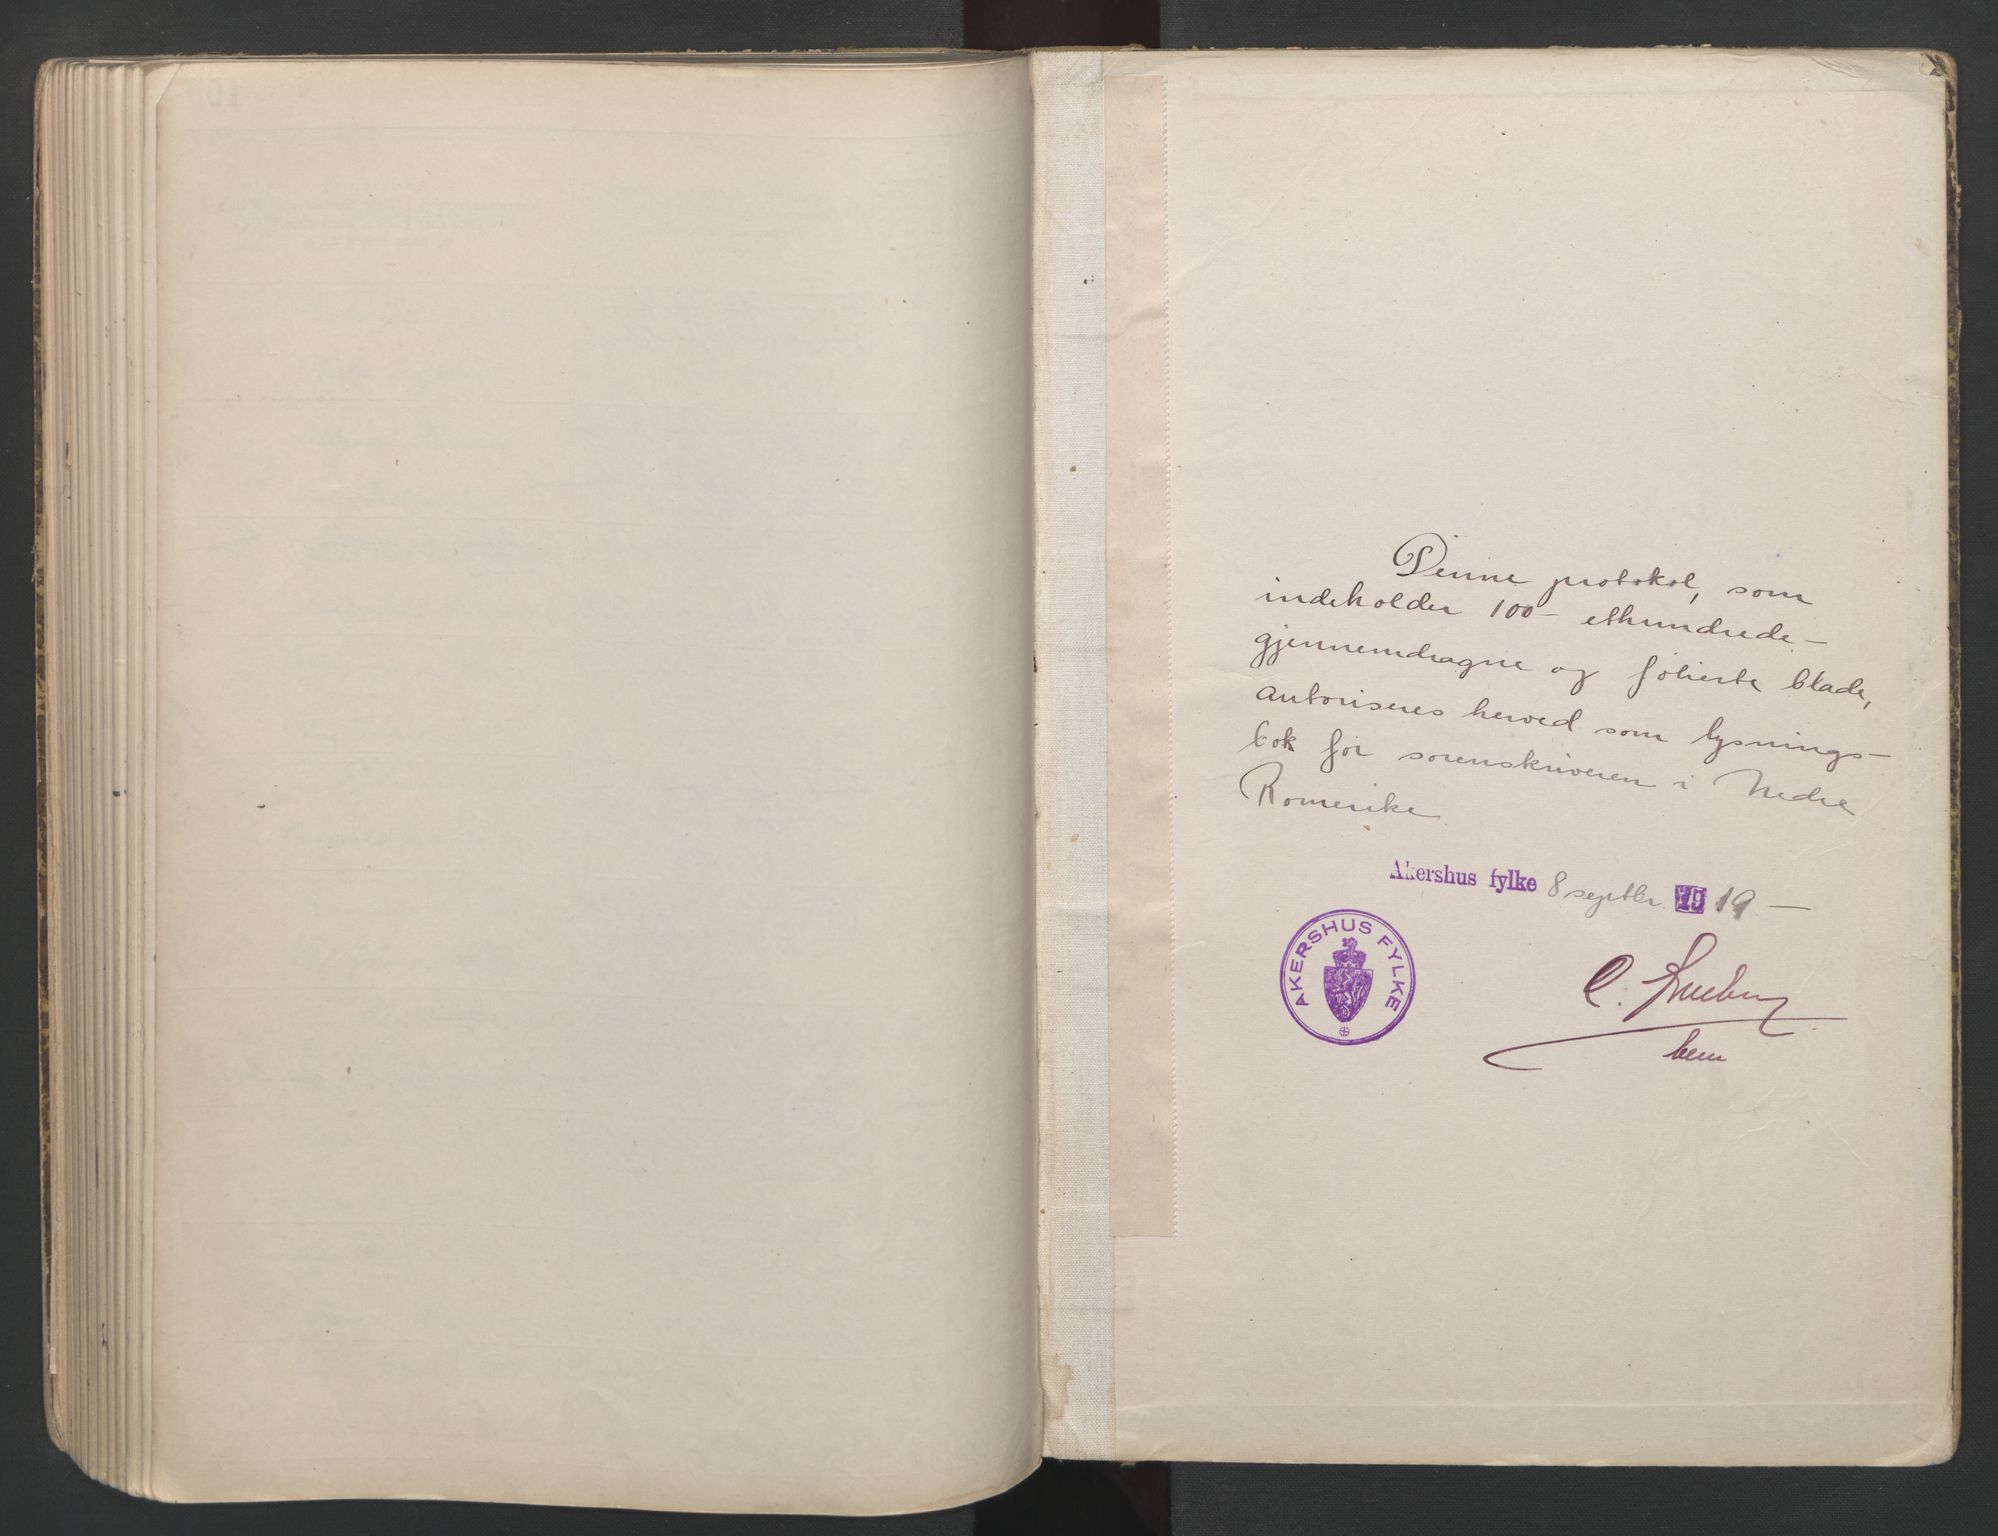 Denne protokol, som
indeholder 100 - ethundrede -
gjennemdragne og folierte blade,
autoriseres herved som lysnings-
bok for sorenskriveren i Nedre
Romerike
Akershus fylke 8 septbr. 1919 -
AKERSHUS FYLKE
C.
bem